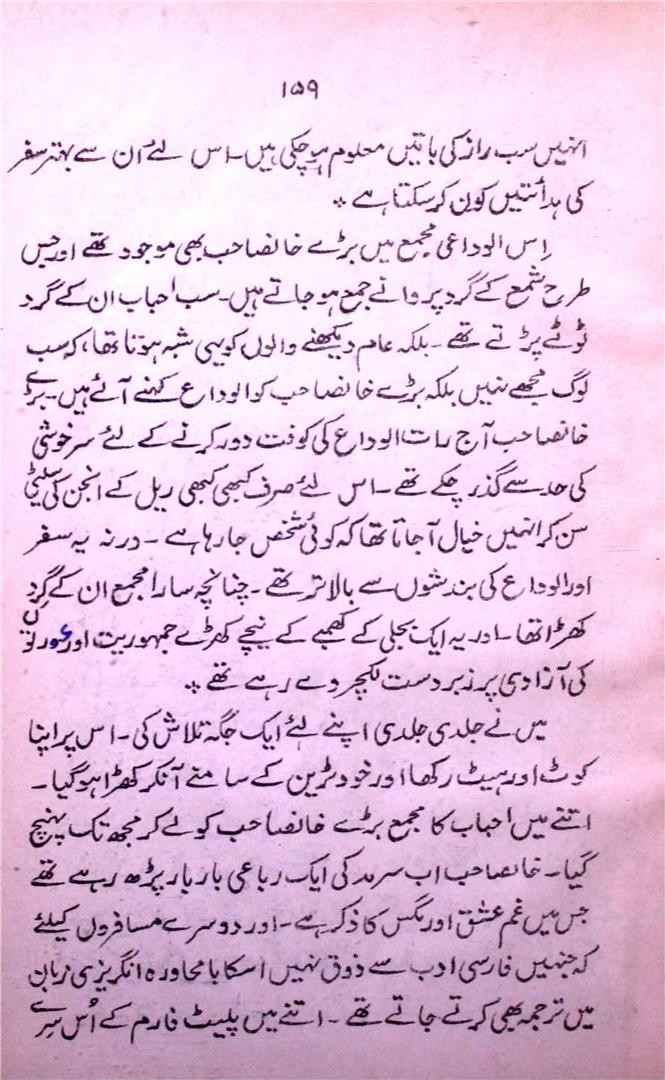 ۱۵۹
انہیں سب راز کی باتیں معلوم ہو چکی ہیں۔ اس لئے اُن سے بہتر سفر
کی ہدائتیں کون کر سکتا ہے ٭
اِس الوداعی مجمع میں بڑے خانصاحب بھی موجود تھے اور جس
طرح شمع کے گرد پروانے جمع ہو جاتے ہیں۔ سب احباب ان کے گرد
ٹوٹے پڑتے تھے۔ بلکہ عام دیکھنے والوں کو یہی شبہ ہوتا تھا، کہ سب
لوگ مجھے نہیں بلکہ بڑے خانصاحب کو الوداع کہنے آئے ہیں۔ بڑے
خانصاحب آج رات الوداع کی کوفت دور کرنے کے لئے سرخوشی
کی حد سے گذر چکے تھے۔ اس لئے صرف کبھی کبھی ریل کے انجن کی سیٹی
سن کر انہیں خیال آ جاتا تھا کہ کوئی شخص جا رہا ہے۔ ورنہ یہ سفر
اور الوداع کی بندشوں سے بالاتر تھے۔ چنانچہ سارا مجمع ان کے گِرد
کھڑا تھا۔ اور یہ ایک بجلی کے کھمبے کے نیچے کھڑے جمہوریت اور عورتوں
کی آزادی پر زبردست لکچر دے رہے تھے ٭
میں نے جلدی جلدی اپنے لئے ایک جگہ تلاش کی۔ اس پر اپنا
کوٹ اور ہیٹ رکھا اور خود ٹرین کے سامنے آنکر کھڑا ہو گیا۔
اتنے میں احباب کا مجمع بڑے خانصاحب کو لے کر مجھ تک پہنچ
گیا۔ خانصاحب اب سرمد کی ایک رباعی بار بار پڑھ رہے تھے
جس میں غم عشق اور مگس کا ذکر ہے۔ اور دوسرے مسافروں کیلئے
کہ جنہیں فارسی ادب سے ذوق نہیں اسکا بامحاورہ انگریزی زبان
میں ترجمہ بھی کرتے جاتے تھے۔ اتنے میں پلیٹ فارم کے اُس سِرے